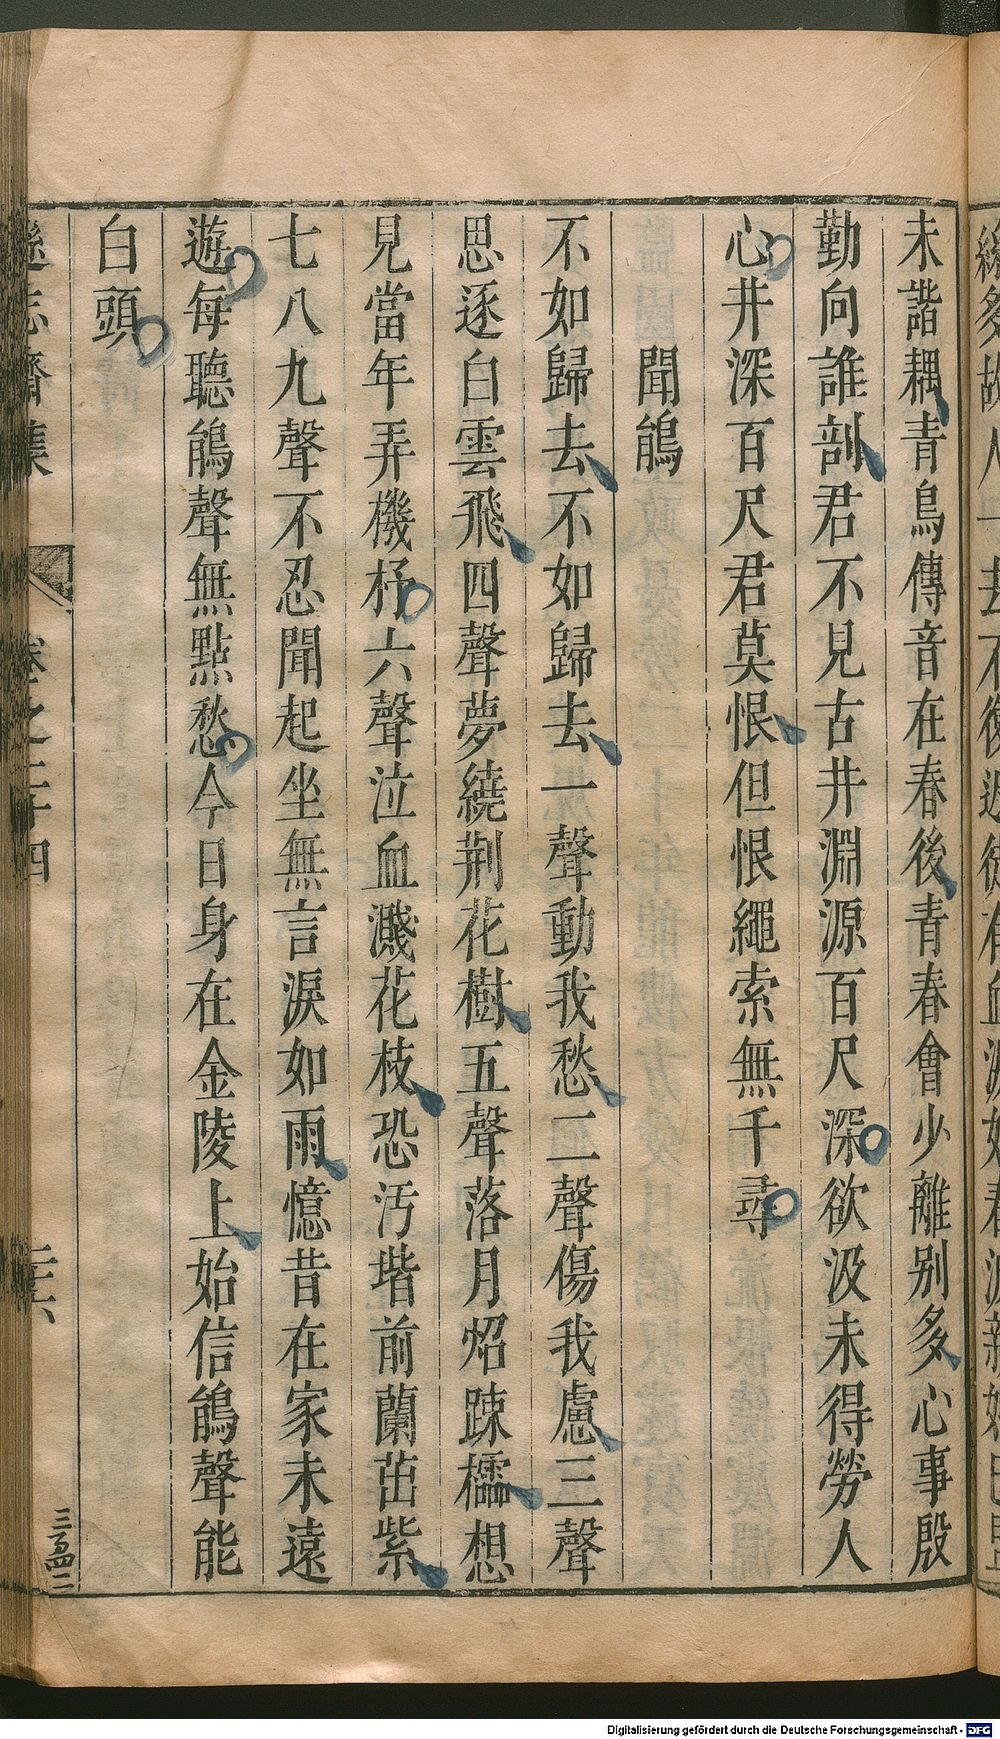 未諧耦青鳥傳音在春後青春會少離别多心事殷
勤向誰剖君不見古井淵源百尺深欲汲未得勞人
心井深百尺君莫恨但恨繩索無千尋
聞鵃
不如歸去不如歸去一聲動我愁二聲傷我慮三聲
思逐白雲飛四聲夢繞荆花樹五聲落月炤踈櫺想
見當年弄機杼六聲泣血濺花枝恐汚堦前蘭茁紫
七八九聲不忍聞起坐無言淚如雨憶昔在家未遠
遊每聽鵃聲無點愁今日身在金陵上始信鵃聲能
白頭
遜志齋集 卷之二十四 三六
三百四二
Digitalisierung gefördert durch die Deutsche Forschungsgemeinschaft - DFG